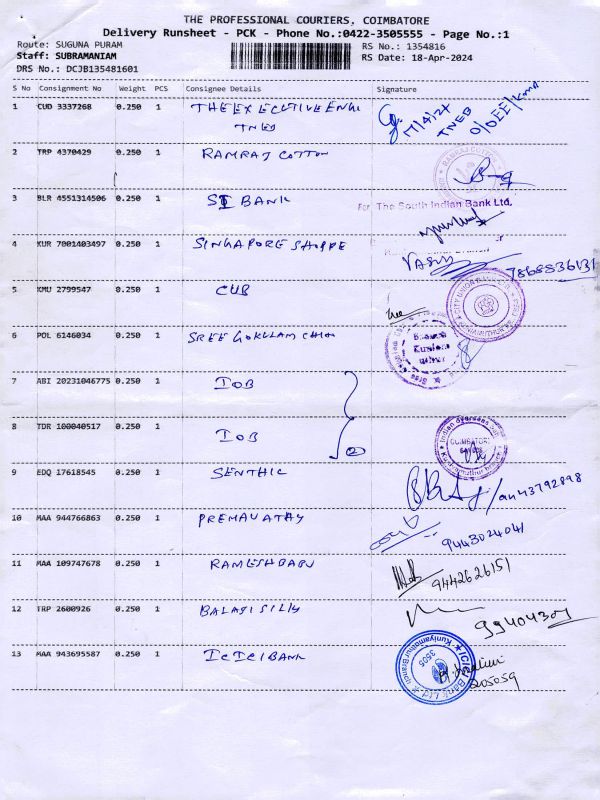 THE PROFESSIONAL COURIERS, COIMBATORE
Delivery Runsheet - PCK - Phone No.:0422-3505555 - Page No.:1
Route: SUGUNA PURAM
RS No.: 1354816
Staff: SUBRAMANIAM
RS Date: 18-Apr-2024
DRS No.: DCJB135481601
S No Consignment No Weight PCS Consignee Details Signature
1 CUD 3337268 0.250 1 THE EXECUTIVE ENGI
TNEB
17/4/24
TNEB
2 TRP 4370429 0.250 1 RAMRAJ COTTON
RAMRAJ COTTON
3 BLR 4551314506 0.250 1 SI BANK
For The South Indian Bank Ltd.
4 KUR 7001403497 0.250 1 SINGAPORE SHOPPE
7868836131
5 KMU 2799547 0.250 1 CUB
CITY UNION BANK LTD
6 POL 6146034 0.250 1 SREE GOKULAM CHIT
Branch
7 ABI 20231046775 0.250 1 IOB
8 TDR 100040517 0.250 1 IOB
2
Indian Overseas Bank
COIMBATORE
9 EDQ 17618545 0.250 1 SENTHIL
10 MAA 944766863 0.250 1 PREMAVATHY
9443024041
11 MAA 109747678 0.250 1 RAMESHBABU
9442626151
12 TRP 2600926 0.250 1 BALAJI SILKS
13 MAA 943695587 0.250 1 ICICI BANK
ICICI Bank Ltd
Kuniyamuthur Branch
3505
205059